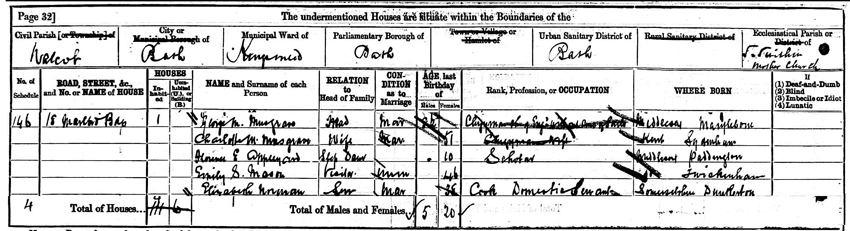 Page 32] The undermentioned Houses are situate within the Boundaries of the
Civil Parish [or Township] of
City or Municipal Borough of
Municipal Ward of
Parliamentary Borough of
Town or Village or Hamlet of
Urban Sanitary District of
Rural Sanitary District of
Ecclesiastical Parish or District of
Walcot Bath Kingsmead Bath Bath
Mother Church
No. of Schedule
ROAD, STREET, &c., and No. or NAME of HOUSE
HOUSES
Inhabited
Uninhabited (U.), or Building (B.)
NAME and Surname of each Person
RELATION to Head of Family
CONDITION as to Marriage
AGE last Birthday of
Males Females
Rank, Profession, or OCCUPATION
WHERE BORN
If
(1) Deaf-and-Dumb
(2) Blind
(3) Imbecile or Idiot
(4) Lunatic
146 18 1 George M. Musgrave Head Mar Middlesex Marylebone
Charlotte M. Musgrave Wife Mar 51 Kent Sydenham
Florence E Appleyard Step Daur 10 Scholar Middlesex Paddington
Emily S. Mason Visitor 46 Twickenham
Elizabeth Norman Serv Mar 38 Cook Domestic Servant Somersetshire Dunkerton
4 Total of Houses... 6 Total of Males and Females... 5 20